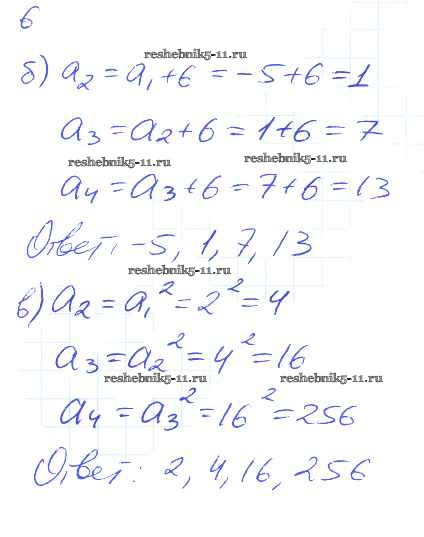 6
reshebnik5-11.ru
б) a₂ = a₁ + 6 = -5 + 6 = 1
a₃ = a₂ + 6 = 1 + 6 = 7
reshebnik5-11.ru reshebnik5-11.ru
a₄ = a₃ + 6 = 7 + 6 = 13
Ответ: -5, 1, 7, 13
reshebnik5-11.ru
в) a₂ = a₁² = 2² = 4
a₃ = a₂² = 4² = 16
reshebnik5-11.ru reshebnik5-11.ru
a₄ = a₃² = 16² = 256
Ответ: 2, 4, 16, 256